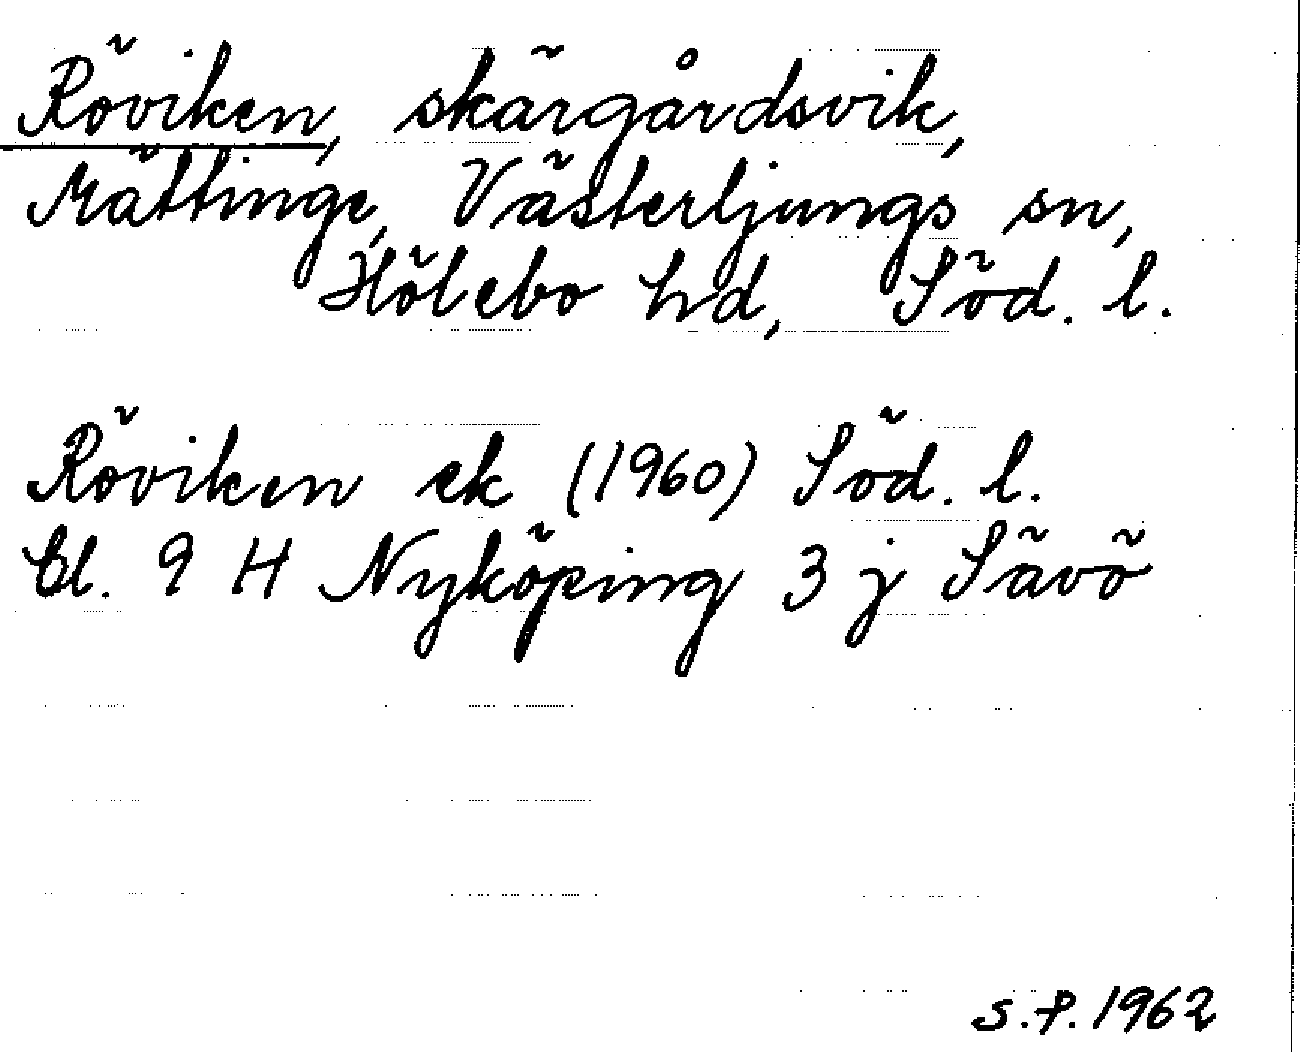 Röviken, skärgårdsvik,
Mättinge, Västerljungs sn,
Hölebo hd, Söd. l.
Röviken ek (1960) Söd. l.
Bl. 9 H Nyköping 3 j Sävö
S.P. 1962